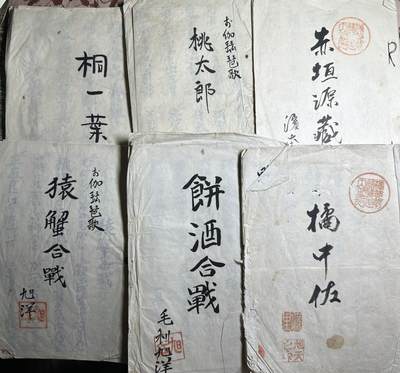 桐一葉
お伽琵琶歌
桃太郎
赤垣源藏
R
お伽琵琶歌
猿蟹合戰
旭洋
餅酒合戰
毛利旭洋
橘中佐